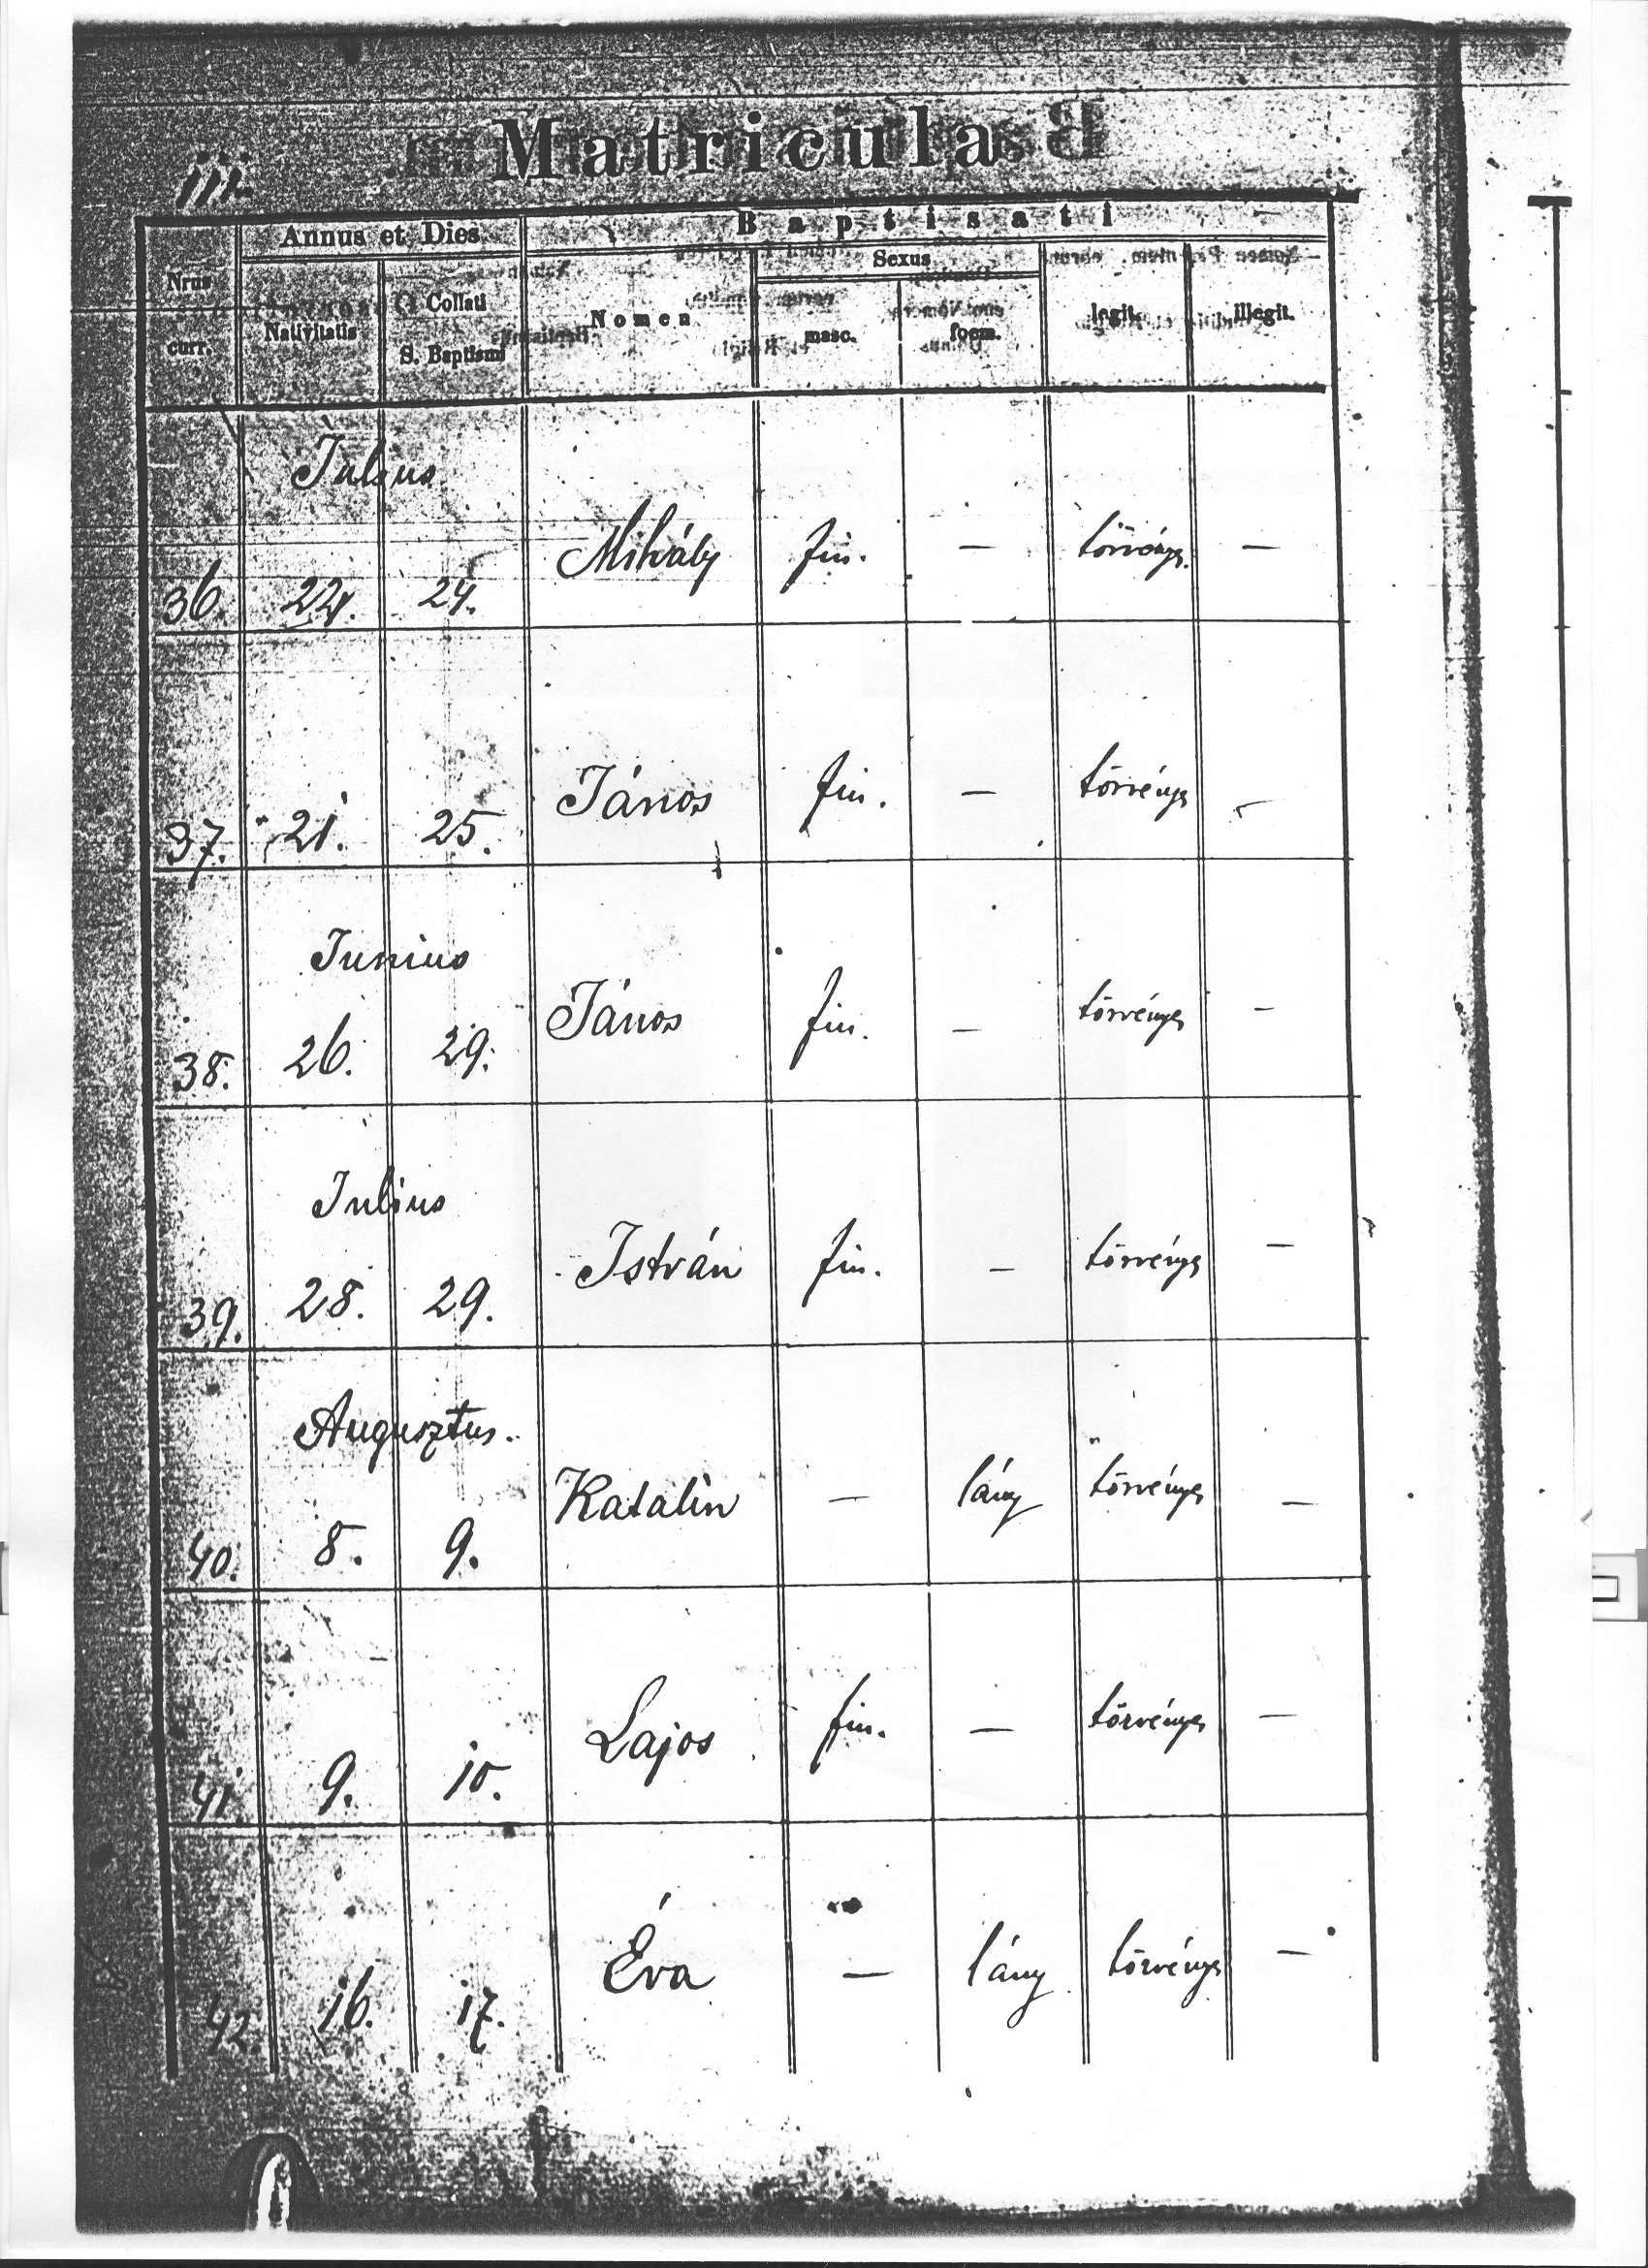 iii.
Matricula
Annus et Dies
Baptisati
Nrus curr.
Nativitatis
Collati S. Baptismi
Nomen
Sexus
masc.
foem.
legit.
illegit.
Július
36. 24. Mihály fiu. — törvénys. —
37. 21. 25. János fiu. — törvénys —
Junius
38. 26. 29. János fiu. — törvénys —
Julius
39. 28. 29. István fiu. — törvénys —
Augusztus.
40. 8. 9. Katalin — lány törvénys —
41. 9. 10. Lajos fiu. — törvénys —
42. 16. 17. Éva — lány törvénys —